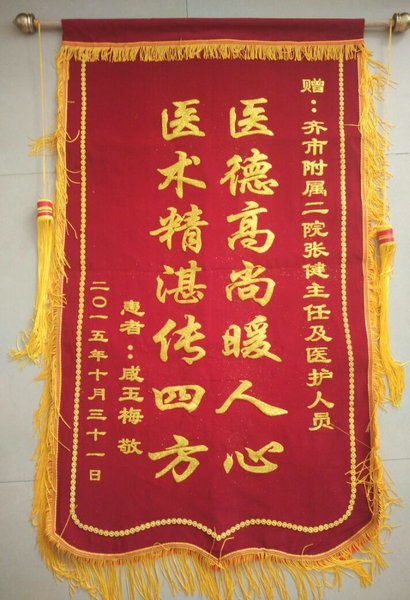 赠：齐市附属二院张健主任及医护人员
医德高尚暖人心
医术精湛传四方
患者：咸玉梅 敬
二〇一五年十月三十一日